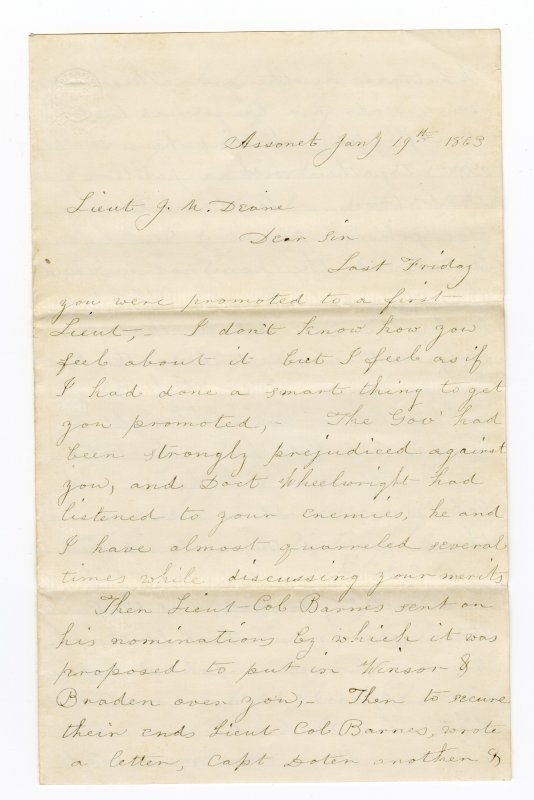 Assonet Jany 19th 1863
Lieut J. M. Deane
Dear Sir
Last Friday
you were promoted to a first
Lieut,- I don't know how you
feel about it but I feel as if
I had done a smart thing to get
you promoted,- The Gov' had
been strongly prejudiced against
you, and Doct Wheelwright had
listened to your enemies, he and
I have almost quarreled several
times while discussing your merits
Then Lieut-Col Barnes sent on
his nominations by which it was
proposed to put in Winsor &
Braden over you,- Then to secure
their ends Lieut Col Barnes, wrote
a letter, Capt Doten another &